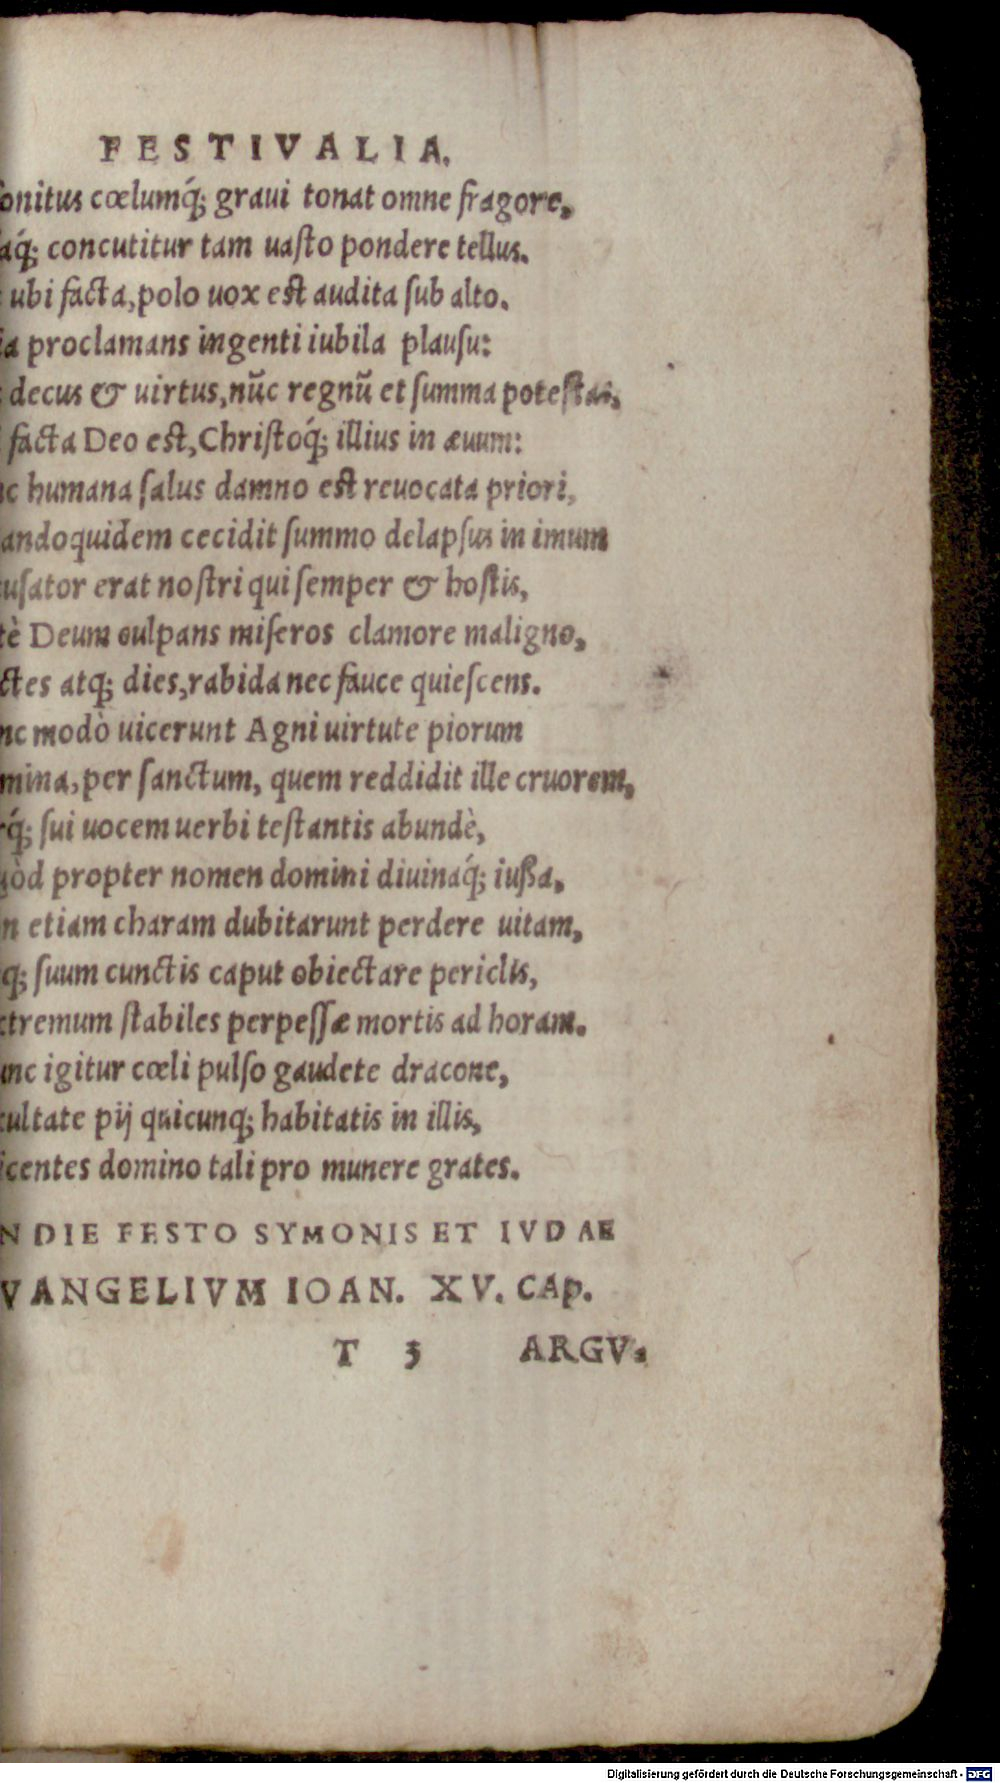 FESTIVALIA.
onitus cœlumq́; graui tonat omne fragore,
aq́; concutitur tam uaſto pondere tellus.
ubi facta, polo uox eſt audita ſub alto.
ia proclamans ingenti iubila plauſu:
decus & uirtus, nũc regnũ et ſumma poteſtas,
facta Deo eſt, Chriſtoq́; illius in æuum:
nc humana ſalus damno eſt reuocata priori,
andoquidem cecidit ſummo delapſus in imum
uſator erat noſtri qui ſemper & hoſtis,
tè Deum culpans miſeros clamore maligno,
ctes atq; dies, rabida nec fauce quieſcens.
nc modò uicerunt Agni uirtute piorum
mina, per ſanctum, quem reddidit ille cruorem,
rq́; ſui uocem uerbi teſtantis abundè,
uòd propter nomen domini diuinaq́; iuſſa,
n etiam charam dubitarunt perdere uitam,
q; ſuum cunctis caput obiectare periclis,
xtremum ſtabiles perpeſſæ mortis ad horam.
unc igitur cœli pulſo gaudete dracone,
xultate pij quicunq; habitatis in illis,
icentes domino tali pro munere grates.
N DIE FESTO SYMONIS ET IVDAE
VANGELIVM IOAN. XV. CAp.
T 3 ARGV-
Digitalisierung gefördert durch die Deutsche Forschungsgemeinschaft - DFG